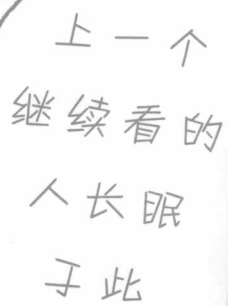 上一个
继续看的
人长眠
于此